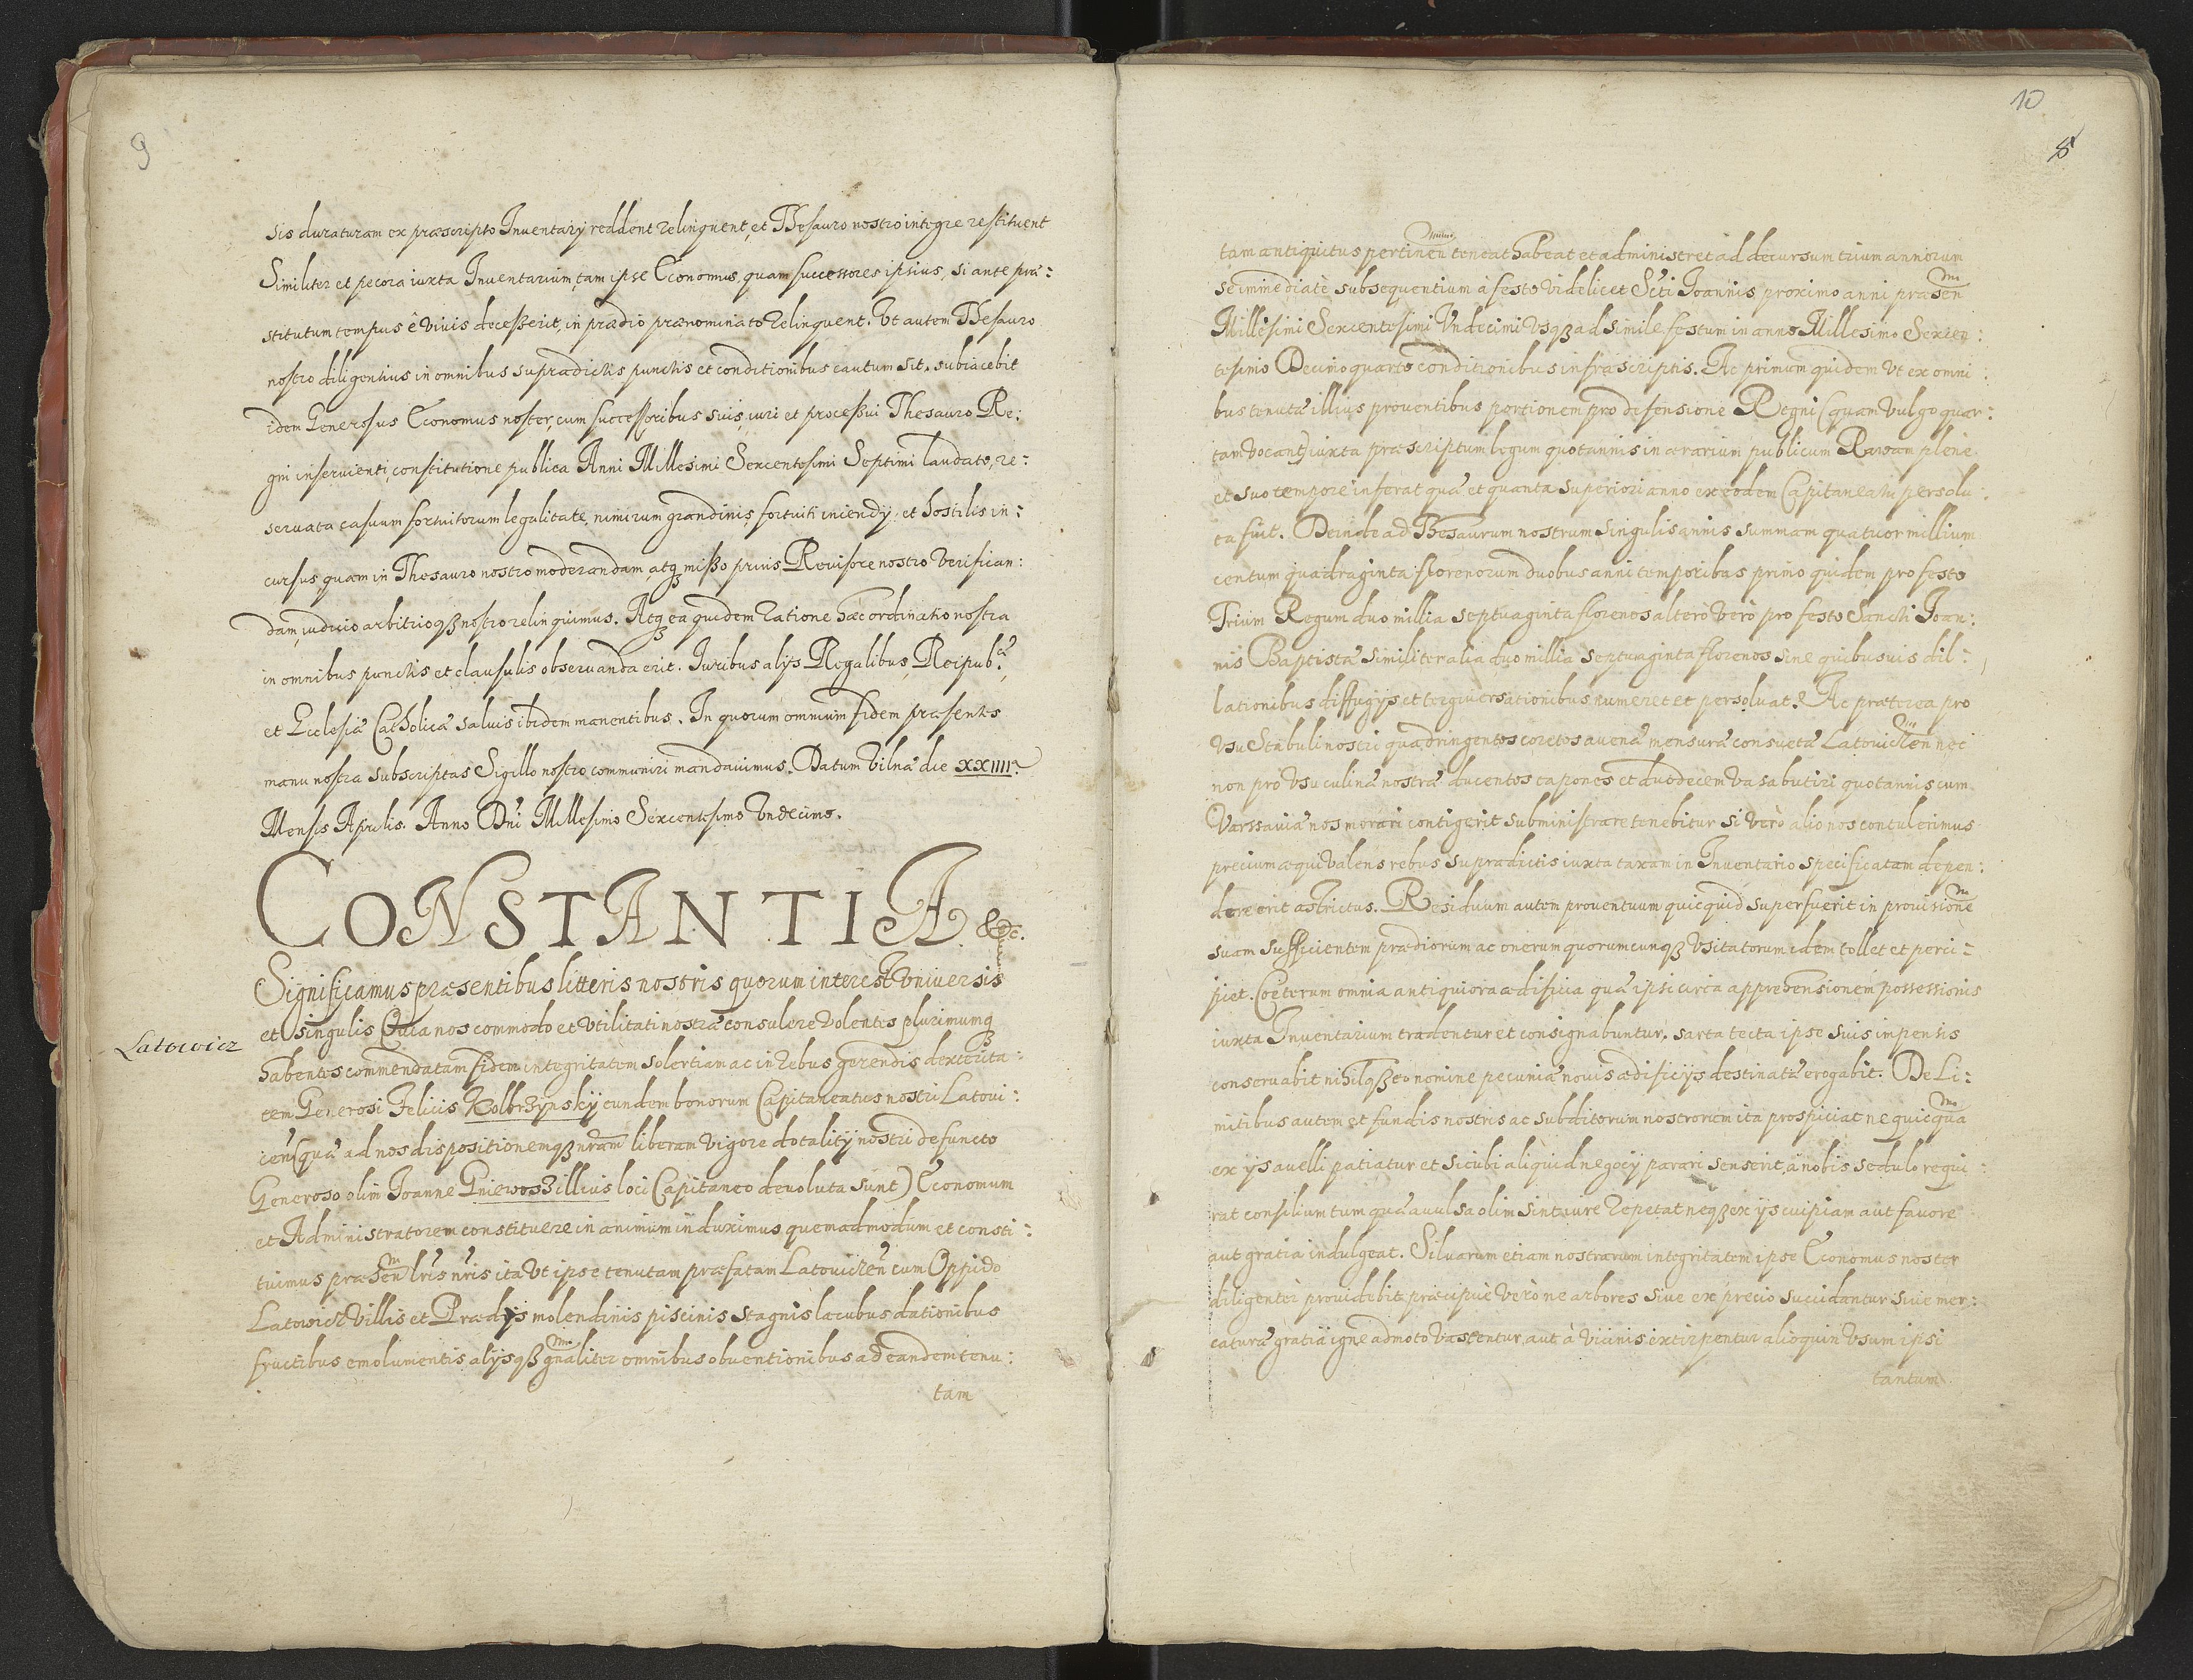 9
sis duraturam ex præscripto Inventarÿ reddent relinquent, et Thesauro nostro integre restituent
Similiter et pecora iuxta Inventarium, tam ipse Œconomus, quam successores ipsius, si ante præ:
stitutum tempus è vivis decesserit, in prædio prænominato relinquent. Vt autem Thesauro
nostro diligentius in omnibus supradictis punctis et conditionibus cautum sit, subiacebit
idem Generosus Œconomus noster, cum successoribus suis, iuri et processui Thesauro Re:
gni inservienti, constitutione publica Anni Millesimi Sexcentesimi Septimi laudato, re:
servata casuum fortuitorum legalitate, nimirum grandinis, fortuiti incendÿ, et hostilis in:
cursus, quam in Thesauro nostro moderandam, atqꝫ misso prius Revisore nostro verifican:
dam, iudicio arbitrioqꝫ nostro relinquimus. Atqꝫ ea quidem ratione hæc ordinatio nostra
in omnibus punctis et clausulis observanda erit. Iuribus alÿs Regalibus, Reipub:cæ,
et Ecclesiæ Catholicæ salvis ibidem manentibus. In quorum omnium fidem præsentes
manu nostra subscriptas Sigillo nostro communiri mandavimus. Datum Vilnæ die XXIIII.
Mensis Aprilis. Anno Dni Millesimo Sexcentesimo Vndecimo.
CONSTANTIA &c.
Significamus præsentibus litteris nostris quorum interest Vniversis
et singulis Quia nos commodo et Vtilitati nostræ consulere Volentes plurimumq
Latowicz
habentes commendatam fidem integritatem solertiam ac in rebus gerendis dexterita:
tem Generosi Felicis Kolbrzynskÿ eundem bonorum Capitaneatus nostri Latovi:
cen (quæ ad nos dispositionemqꝫ nram liberam vigore dotalitÿ nostri defuncto
Generoso olim Joanne Gniewosz illius loci Capitaneo devoluta sunt) Œconomum
et Administratorem constituere in animum induximus quemadmodum et consti:
tuimus præsen lris nris ita Vt ipse tenutam præfatam Latovicien cum Oppido
Latowicz Villis et Prædÿs molendinis piscinis stagnis lacubus dationibus
fructibus emolumentis alÿsqꝫ gnaliter omnibus obventionibus ad eandem tenu:
tam
10
8
tam antiquitus pertinen teneat habeat et administret ad decursum trium annorum
se immediatè subsequentium à festo videlicet Scti Joannis proximo anni præsen
Millesimi Sexcentesimi Vndecimi Vsqꝫ ad simile festum in anno Millesimo Sexcen:
tesimo Decimoquarto conditionibus infrascriptis. Ac primum quidem Vt ex omni:
bus tenutæ illius proventibus portionem pro defensione Regni (quam Vulgo quar:
tam vocant) iuxta præscriptum legum quotannis in ærarium publicum Ravam plene
et suo tempore inferat quæ et quanta superiori anno ex eodem Capitaneatu persolu:
ta fuit. Deinde ad Thesaurum nostrum singulis annis summam quatuor millium
centum quadraginta florenorum duobus anni temporibus primo quidem pro festo
Trium Regum duo millia septuaginta florenos altero Vero pro festo Sancti Joan:
nis Baptistæ similiter alia duo millia septuaginta florenos sine quibusuis dil:
lationibus diffugÿs et tergiversationibus numeret et persolvat. Ac præterea pro
Vsu Stabuli nostri quadringentos coretos avenæ mensuræ consuetæ Latovicien nec
non pro Vsu culinæ nostræ ducentos capones et duodecem vasa butiri quotannis cum
Varssaviæ nos morari contigerit subministrare tenebitur si Verò alio nos contulerimus
precium æquivalens rebus supradictis iuxta taxam in Inventario specificatam depen:
dere erit astrictus. Residuum autem proventuum quicquid superfuerit in provisione
suam sufficientem prædiorum ac onerum quorumcunqꝫ Vsitatorum idem tollet et perci:
piet. Cœterum omnia antiquiora ædificia quæ ipsi circa apprehensionem possessionis
iuxta Inventarium tradentur et consignabuntur, sarta tecta ipse suis impensis
conservabit nihilqꝫ eo nomine pecuniæ novis ædificÿs destinatæ erogabit. De Li:
mitibus autem et fundis nostris ac subditorum nostrorum ita prospiciat ne quicqua
ex ÿs avelli patiatur et sicubi aliquid negocÿ parari senserit, à nobis sedulo requi:
rat consilium tum quæ avulsa olim sint iure repetat neqꝫ ex ÿs cuipiam aut favore
aut gratia indulgeat. Silvarum etiam nostrarum integritatem ipse Œconomus noster
diligenter providebit præcipuè Verò ne arbores sive ex precio succidantur sive mer:
caturæ gratia igne admoto Vastentur aut à vicinis extirpentur alioquin Vsum ipsi
tantum